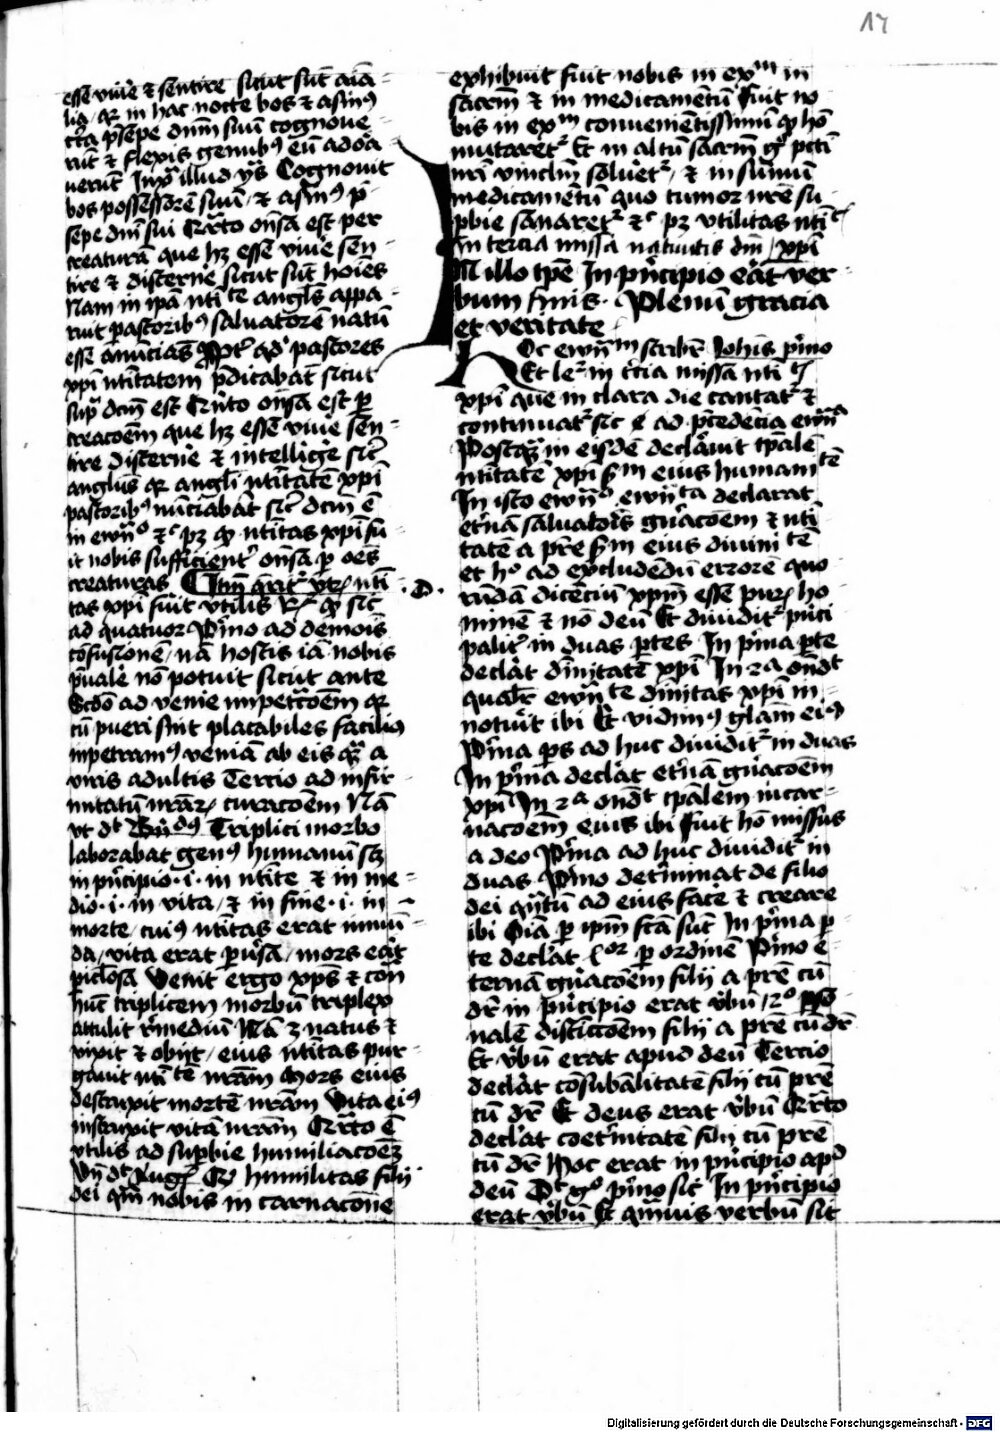 17
esse viuẽ & sentire sicut sũt aĩa
lia qr in hac nocte bos & asinꝰ
circa p̃sepe dñm suũ cognoue
rũt & flexis genubꝰ eũ adora
uerũt Juxᵃ illud ysᵉ Cognouit
bos possessorẽ suũ & asinꝰ p̃
sepe dñi sui Quarto oñsa est per
creaturã que hꝫ esse viuẽ sen
tire & discernẽ sicut sũt hoĩes
Nam in ipã nťiᵗᵉ anglꝰ appa
ruit pastoribꝰ saluatorẽ natũ
esse anuncians Propt qd pastores
xp̃i nťitatem p̃dicabãt sicut
supᵃ dcm̃ est Quinto oñsa est ꝑ
creacoẽm que hꝫ esse viuẽ sen
tire discernẽ & intelligẽ sicut
anglus qr angli nťitatẽ xp̃i
pastoribꝰ nũciabãt sicut dcm̃ ẽ
in ewᵒ &c pꝫ ꝙ nťitas xp̃i fu
it nobis sufficient oñsa ꝑ oẽs
creaturas Itm̃ querit utrum nťi
tas xp̃i fuit vtilis ꝙ sic · D ·
ad quatuor Primo ad demois
cõfusionẽ nã hostis iã nobis
p̃ualẽ nõ potuit sicut ante
Scdo ad venie impetracoẽm qr
cũ pueri sint placabiles faciliꝰ
impetramꝰ veniã ab eis qᵃ a
viris adultis Tercio ad infir
mitatũ nrãrum curacoẽm Nã
vt dᵗ Bernꝰ Triplici morbo
laborabat genꝰ humanũ scꝫ
in principio · i · in nťite & in me
dio · i · in vita & in fine · i · in
morte cuiꝰ nťitas erat immũ
da vita erat ꝑuersa mors erat
piclosa Venit ergo xp̃s & con
hũc triplicem morbũ triplex
attulit remediũ Nã natus &
vixit & obijt eius nťitas pur
gauit nťiᵗᵉ nrãm Mors eius
destruxit mortẽ nrãm Vita eiꝰ
instruxit vitã nrãm Quarto ẽ
vtilis ad suꝑbie humiliacoẽꝫ
Vñ dᵗ Augꝰ humilitas filij
dei qm̃ nobis in carnacõne
exhibuit fuit nobis in exᵐ in
sacrm̃ & in medicamẽtũ Fuit no
bis in exᵐ conuenientissimũ ꝙ hõ
mutaretʳ Et in altũ sacrm̃ pcti
nrĩ vinclm̃ solueretʳ & in sũmũ
medicamẽtũ quo tumor nrẽ su
ꝑbie sanaretʳ &c pꝫ vtilitas nťi
In tercia missa natiuitatis dñi xp̃i
In illo tp̃e In principio erat ver
bum finis Plenũ gracia
et veritate
Hoc ewᵐ scribit Johis primo
Et legitur in tercia missa nťi
xp̃i que in clara die cantatʳ &
continuatʳ sic ad p̃cedẽcia ewᵃ
Postquam in eisdẽ declarauit tp̃alẽ
nťitatẽ xp̃i ẜm eius humaniᵗᵉ
In isto ewᵒ ewᵗᵃ declarat
eternã saluatoris gñacoẽm & nťi
tatẽ a p̃re ẜm eius diuiniᵗᵉ
et hᵒ ad excludedũ errorẽ quo
rũdã dicẽciũ xp̃m esse purum ho
minẽ & nõ deũ Et diuiditʳ pñci
palitʳ in duas ꝑtes In p̃ma ꝑte
declarat diuinitatẽ xp̃i In 2ᵃ ondᵗ
qualiter ewᵗᵉ diuinitas xp̃i in
notuit ibi Et vidimꝰ glãm eiꝰ
Prima ꝑs ad huc diuiditʳ in duas
In p̃ma declarat eternã gñacoẽm
xp̃i In 2ᵃ ondᵗ tp̃alem incar
nacoẽm eius ibi Fuit hõ missus
a deo Prima ad huc diuiditʳ in
duas Primo determinat de filio
dei qñtũ ad eius facẽ & creare
ibi Oĩa ꝑ ipm̃ fcã sũt In p̃ma ꝑ
te declarat ꝑ ordinẽ Primo e
ternã gñacoẽm filij a p̃re cũ
dr̃ in principio erat vbũ 2ᵒ ꝑso
nalẽ distictoẽm filij a p̃re cũ dr̃
Et vbũ erat apud deũ Tercio
declarat cõsubalitatẽ filij cũ p̃re
cũ dr̃ Et deus erat vbũ Quarto
declarat coeternitatẽ filij cũ p̃re
cũ dr̃ Hoc erat in principio apd
deũ Dᵗ gᵒ primo sic In principio
erat vbũ Et quis verbũ sit
Digitalisierung gefördert durch die Deutsche Forschungsgemeinschaft - DFG